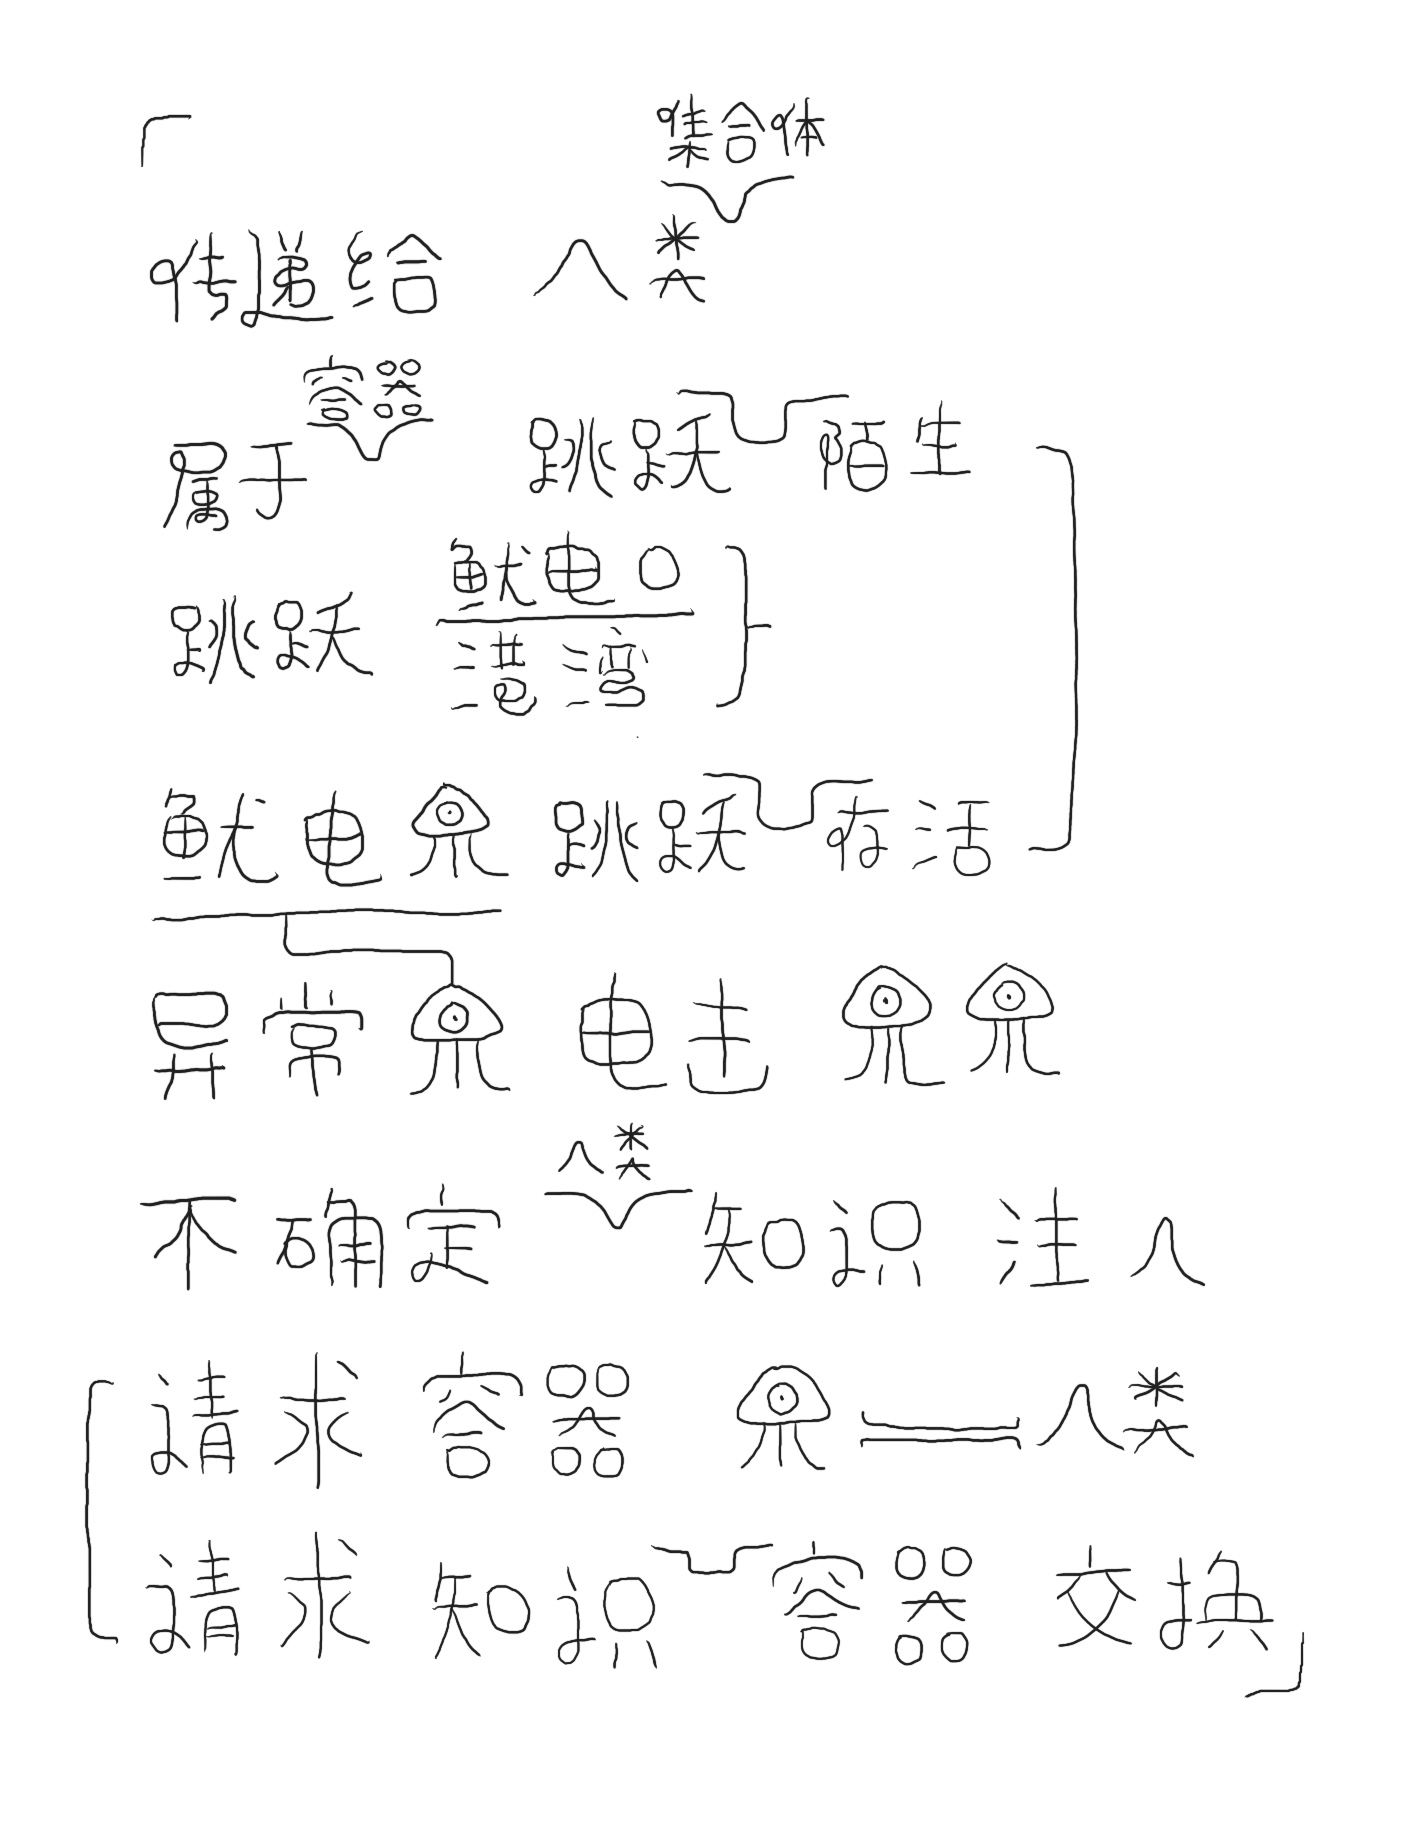 「
集合体
传递给 人类
容器
属于 跳跃 陌生
鱿电口
跳跃
港湾
鱿电 跳跃 存活
异常 电击
人类
不确定 知识 注入
请求 容器 人类
请求 知识 容器 交换」